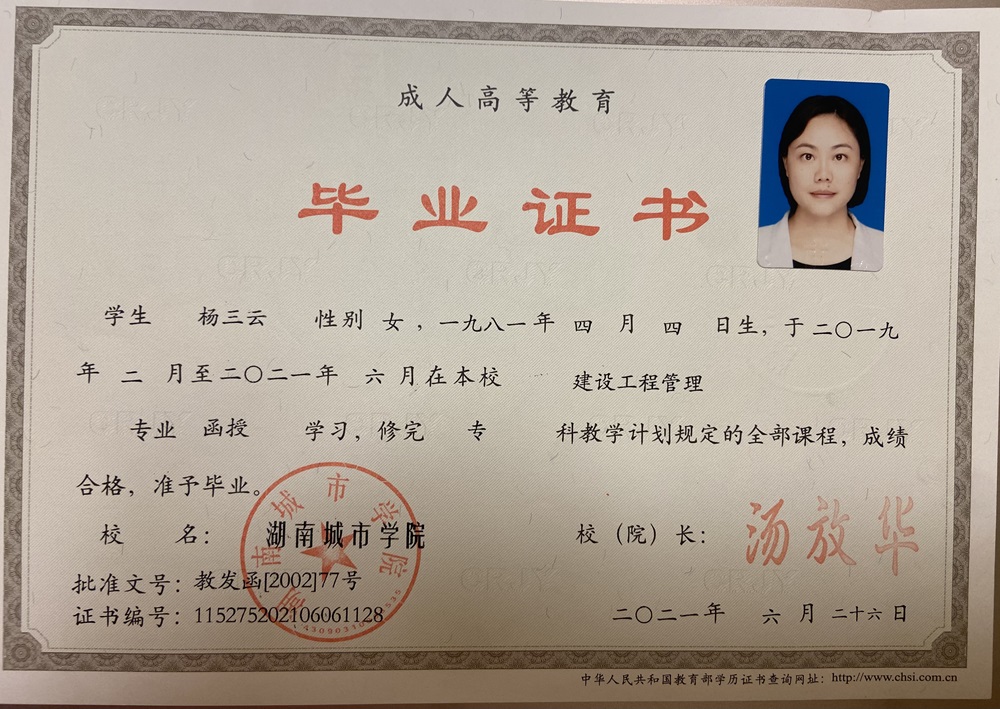 成人高等教育
毕业证书
学生 杨三云 性别 女，一九八一年 四 月 四 日生，于二〇一九
年 二 月至二〇二一年 六 月在本校 建设工程管理
专业 函授 学习，修完 专 科教学计划规定的全部课程，成绩
合格，准予毕业。
校 名： 湖南城市学院
校（院）长： 汤放华
批准文号：教发函[2002]77号
证书编号：115275202106061128
二〇二一年 六 月 二十六日
湖南城市学院
中华人民共和国教育部学历证书查询网址：http://www.chsi.com.cn